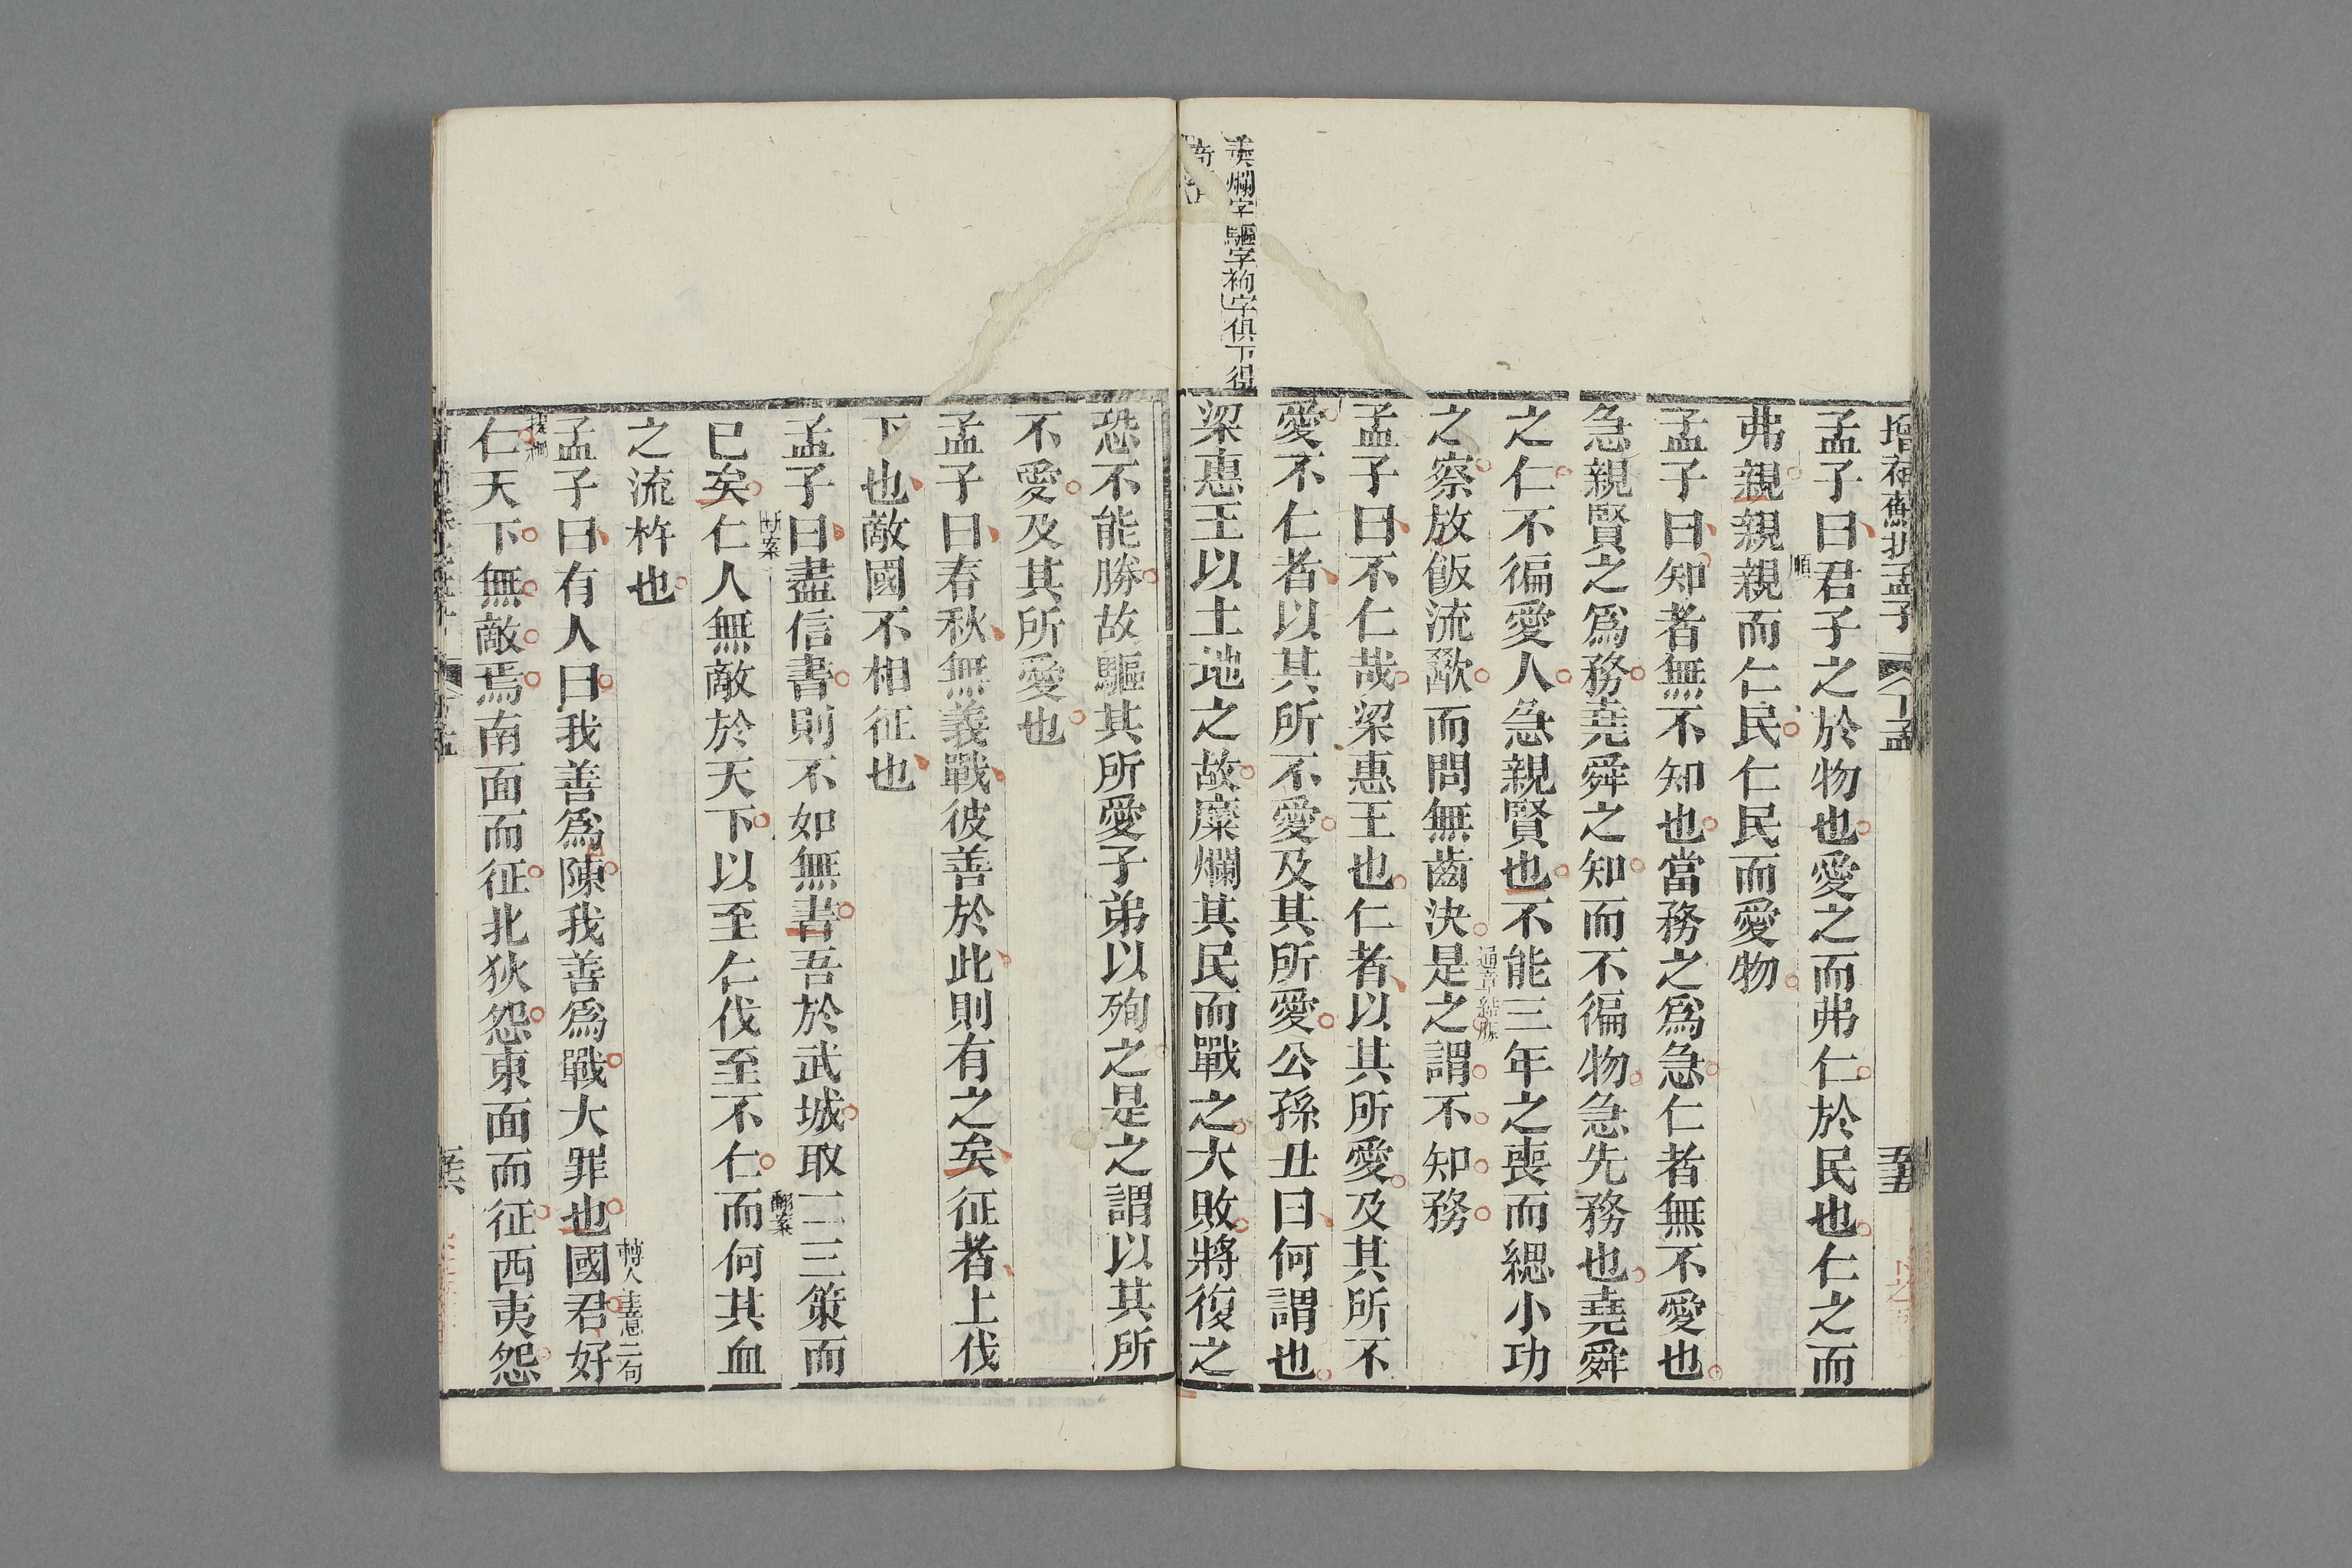 增補蘇批孟子
下孟
五十五
孟子曰君子之於物也愛之而弗仁於民也仁之而
弗親親親而仁民仁民而愛物
順
孟子曰知者無不知也當務之爲急仁者無不愛也
急親賢之爲務堯舜之知而不徧物急先務也堯舜
之仁不徧愛人急親賢也不能三年之喪而緦小功
之察放飯流歠而問無齒決是之謂不知務
通章結脈
孟子曰不仁哉梁惠王也仁者以其所愛及其所不
愛不仁者以其所不愛及其所愛公孫丑曰何謂也
梁惠王以土地之故糜爛其民而戰之大敗將復之
爛字驅字殉字俱下得
恐不能勝故驅其所愛子弟以殉之是之謂以其所
不愛及其所愛也
孟子曰春秋無義戰彼善於此則有之矣征者上伐
下也敵國不相征也
孟子曰盡信書則不如無書吾於武城取二三策而
已矣仁人無敵於天下以至仁伐至不仁而何其血
斷案
翻案
之流杵也
孟子曰有人曰我善爲陳我善爲戰大罪也國君好
轉入主意二句
仁天下無敵焉南面而征北狄怨東面而征西夷怨
提綱